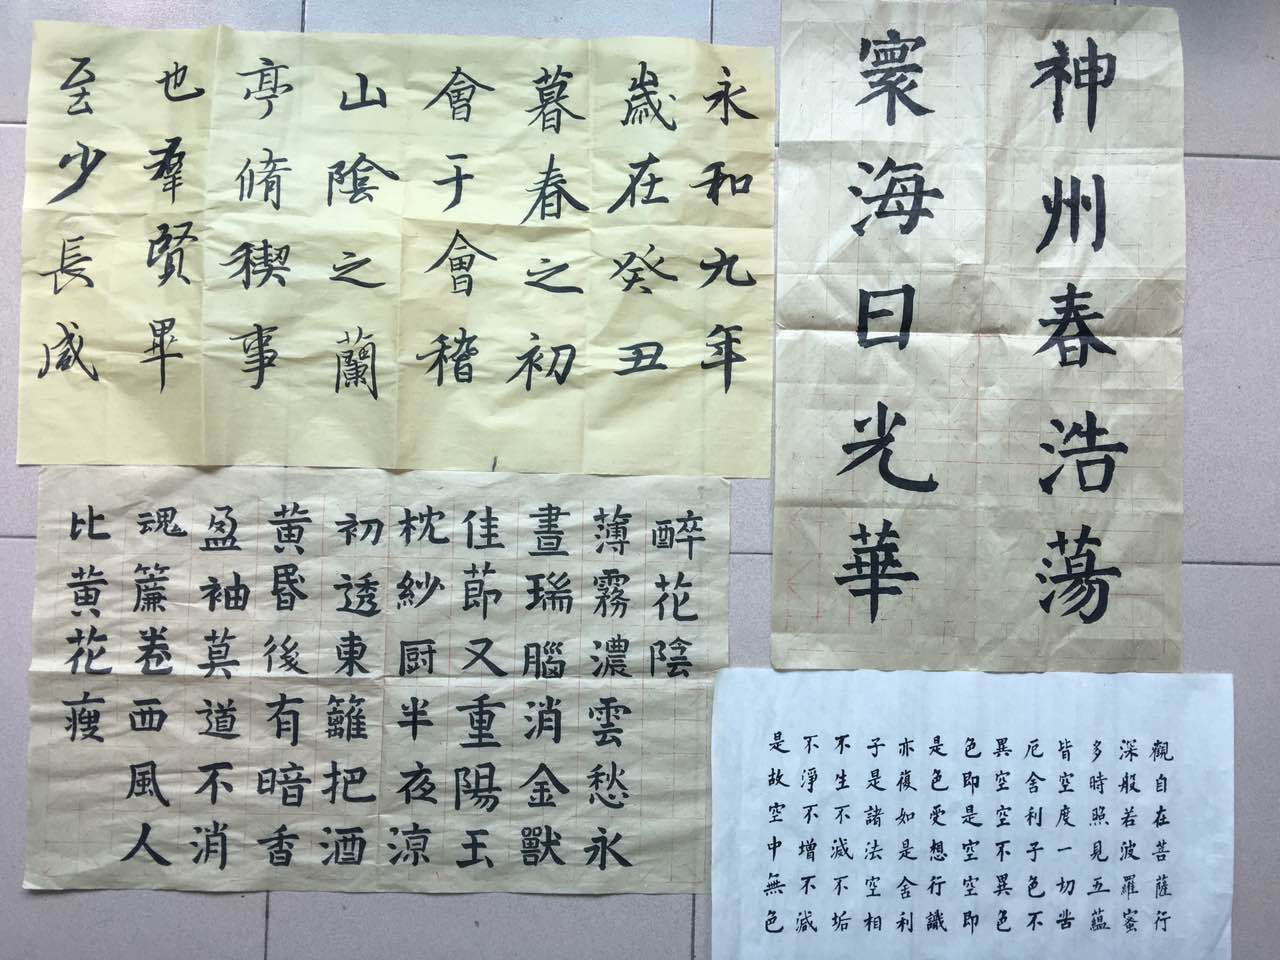 永和九年
歲在癸丑
暮春之初
會于會稽
山陰之蘭
亭脩稧事
也羣賢畢
至少長咸
神州春浩蕩
寰海日光華
醉花陰
薄霧濃雲愁永
晝瑞腦消金獸
佳節又重陽玉
枕紗厨半夜涼
初透東籬把酒
黃昏後有暗香
盈袖莫道不消
魂簾卷西風人
比黃花瘦
觀自在菩薩行
深般若波羅蜜
多時照見五蘊
皆空度一切苦
厄舍利子色不
異空空不異色
色即是空空即
是色受想行識
亦復如是舍利
子是諸法空相
不生不滅不垢
不淨不增不減
是故空中無色